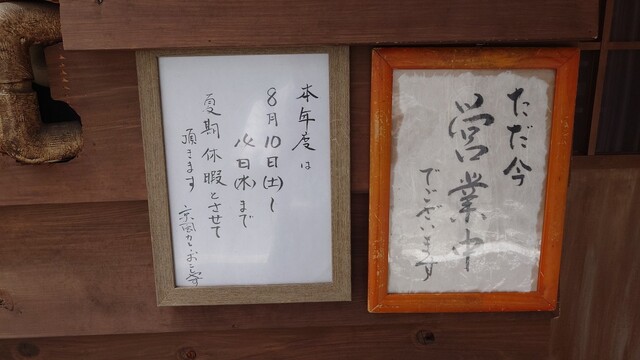 本年度は
8月10日(土)〜
14日(水)まで
夏期休暇とさせて
頂きます
ただ今
営業中
でございます